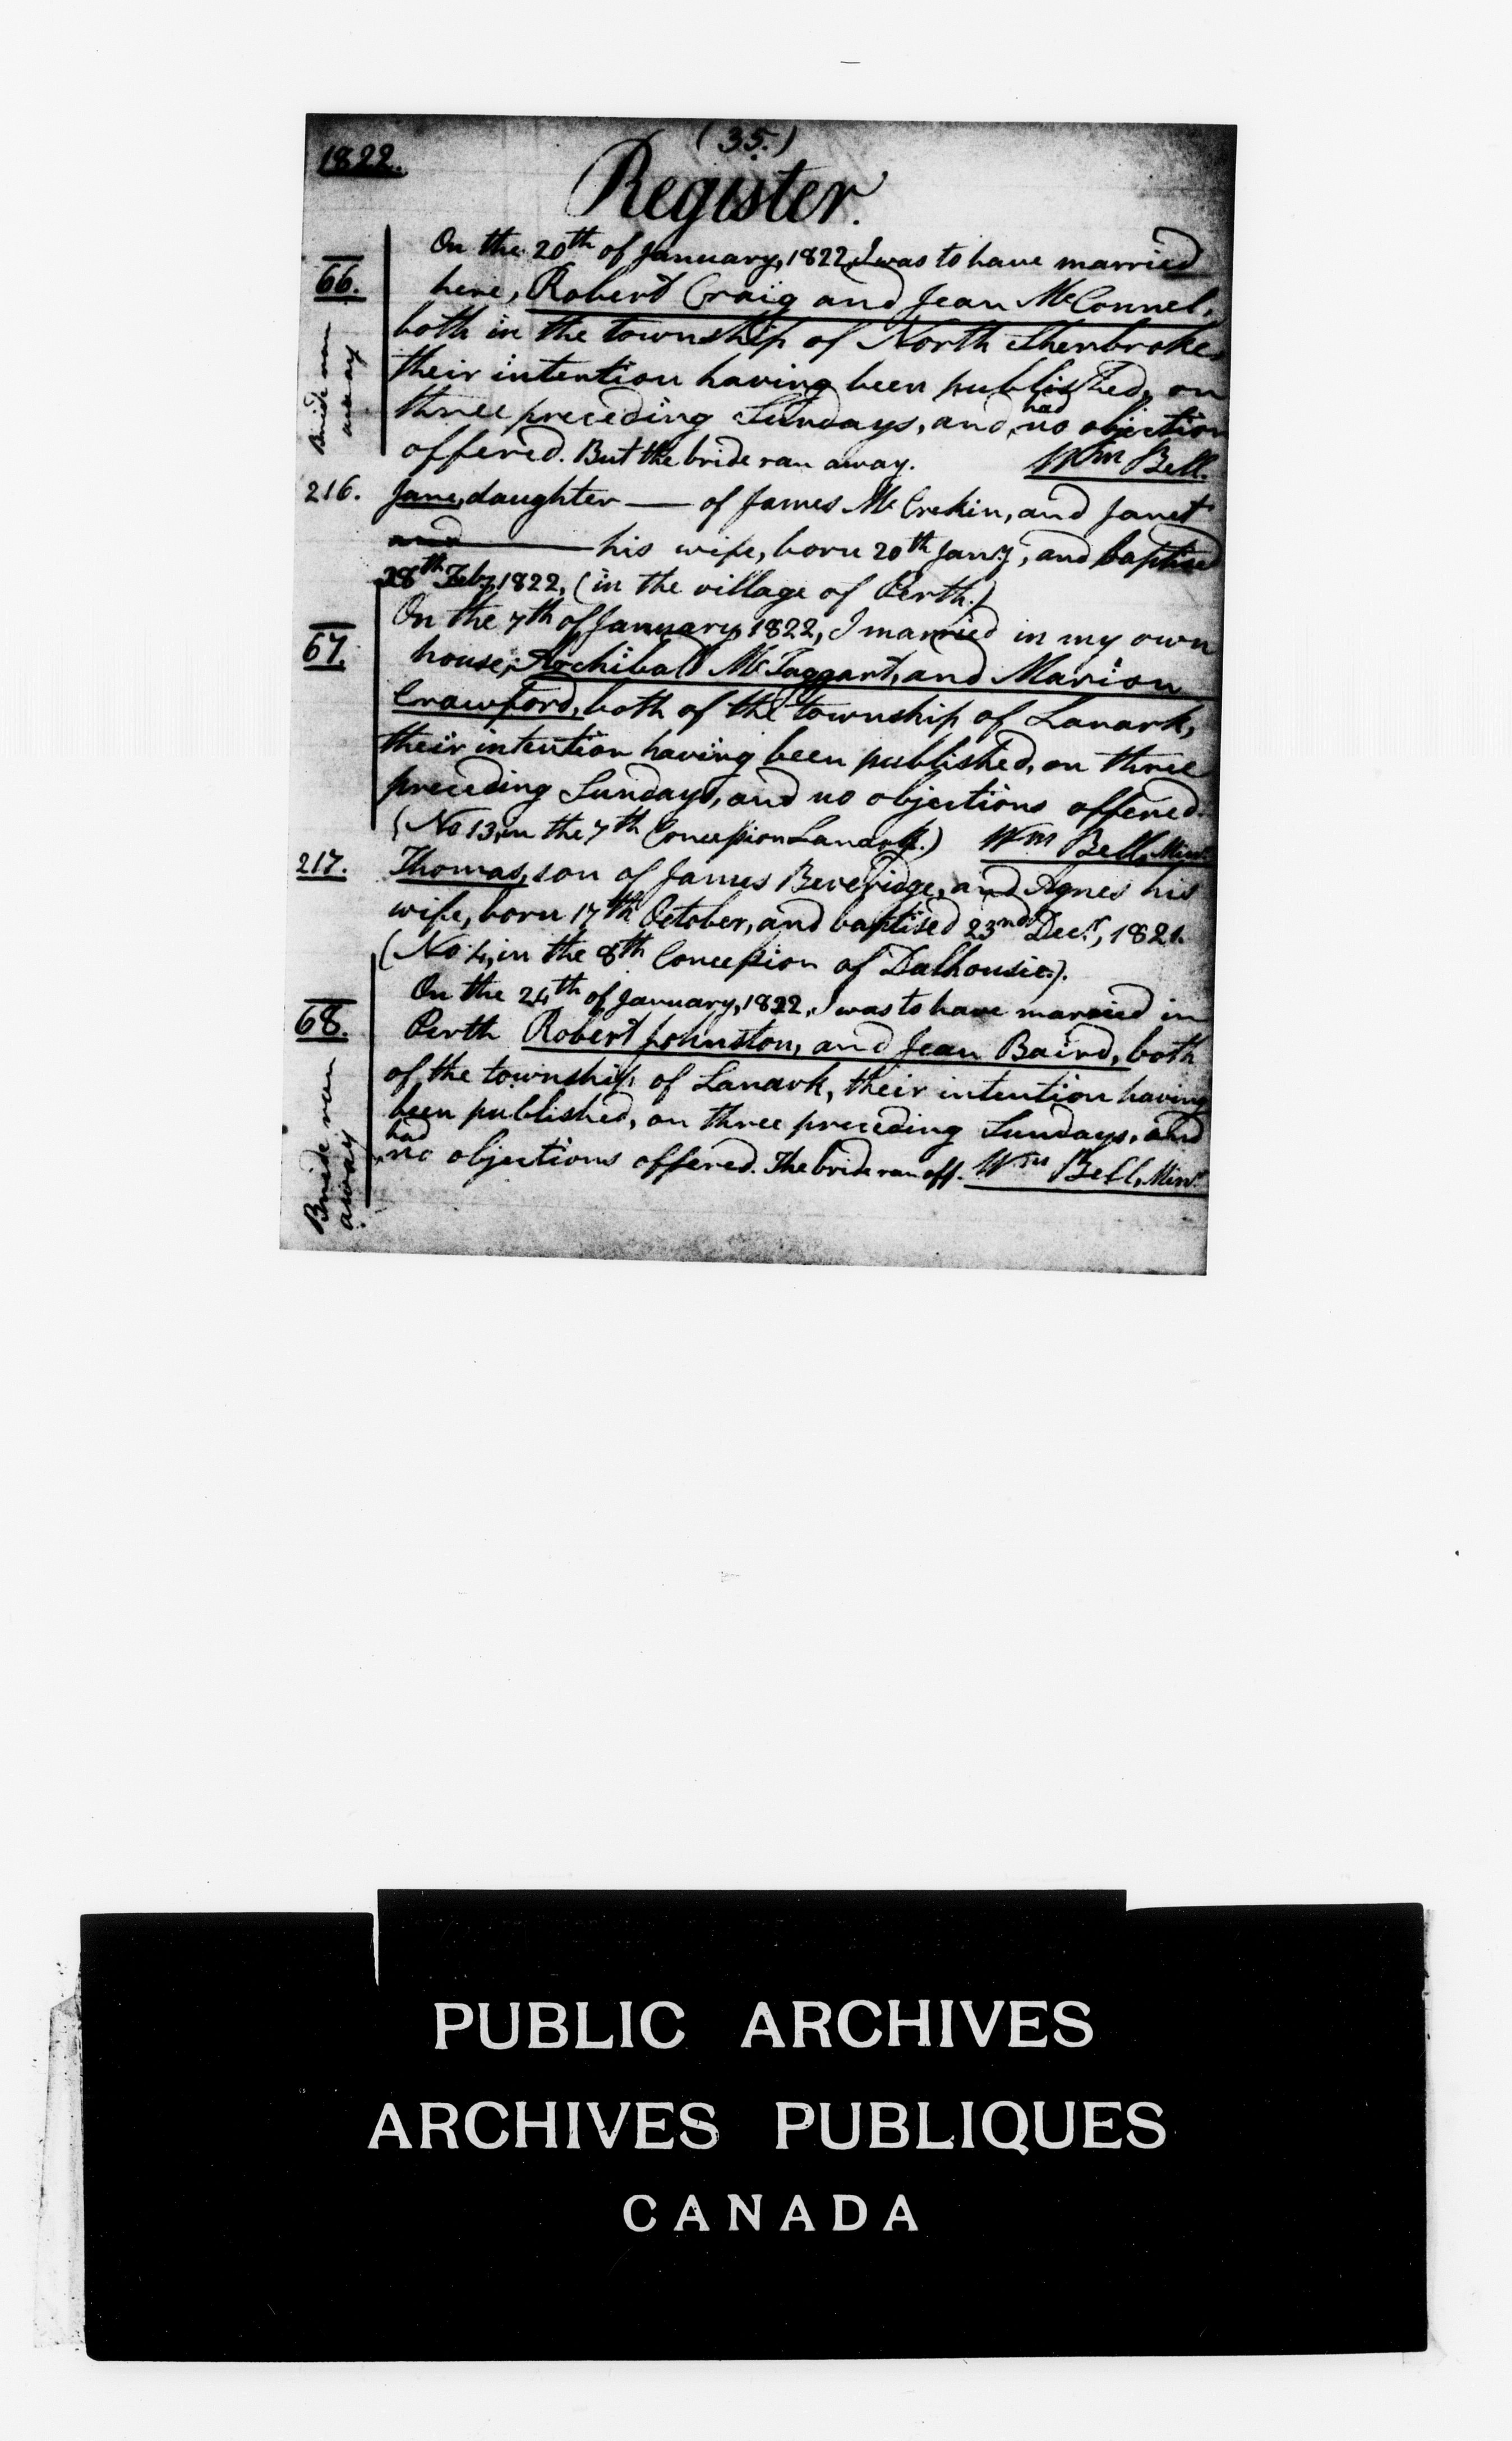 (35.)
1822.
Register.
66.
Bride run
away
On the 20th of January, 1822, I was to have married
here, Robert Craig and Jean McConnel,
both in the township of North Sherbroke
their intention having been published, on
three preceding Sundays, and had no objection
offered. But the bride ran away. Wm Bell.
216. Jane, daughter — of James McCrekin, and Janet
and — his wife, born 20th Jany, and baptised
28th Feby, 1822, (in the village of Perth.)
67.
On the 7th of January 1822, I married in my own
house, Archibald McTaggart, and Marion
Crawford, both of the township of Lanark,
their intention having been published, on three
preceding Sundays, and no objections offered.
(No 13, in the 7th Concession Lanark.) Wm Bell, Minr.
217. Thomas, son of James Beveridge, and Agnes his
wife, born 17th October, and baptised 23nd Decr, 1821.
(No 4, in the 8th Concession of Dalhousie.).
68.
Bride run
away
On the 24th of January, 1822, I was to have married in
Perth Robert Johnston, and Jean Baird, both
of the township of Lanark, their intention having
been published, on three preceding Sundays, and
had no objections offered. The bride ran off. Wm Bell, Minr.
PUBLIC ARCHIVES
ARCHIVES PUBLIQUES
CANADA